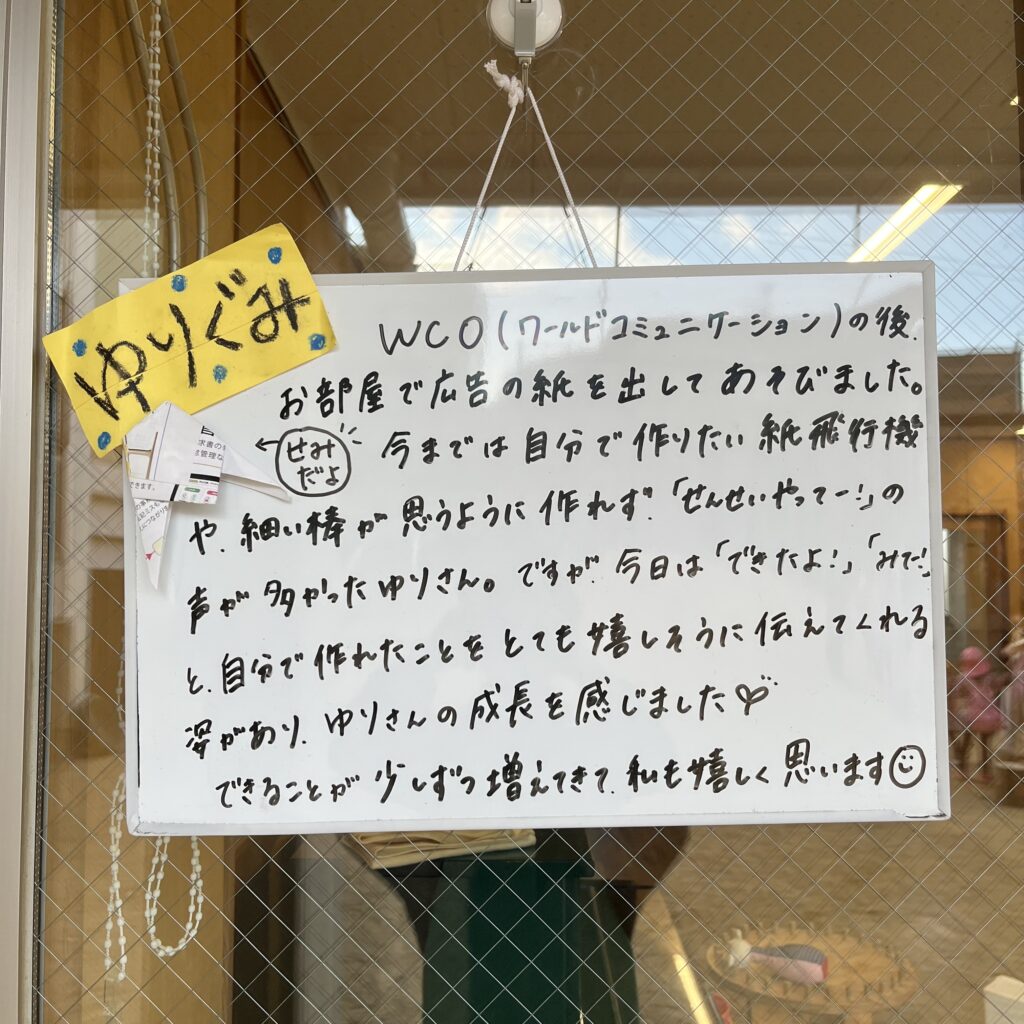 ゆりぐみ
WCO(ワールドコミュニケーション)の後、
お部屋で広告の紙を出してあそびました。
せみ
だよ
今までは自分で作りたい紙飛行機
や、細い棒が思うように作れず、「せんせいやってー!」の
声が多かったゆりさん。ですが、今日は「できたよ!」「みて!」
と、自分で作れたことをとても嬉しそうに伝えてくれる
姿があり、ゆりさんの成長を感じました♡
できることが少しずつ増えてきて、私も嬉しく思います☺